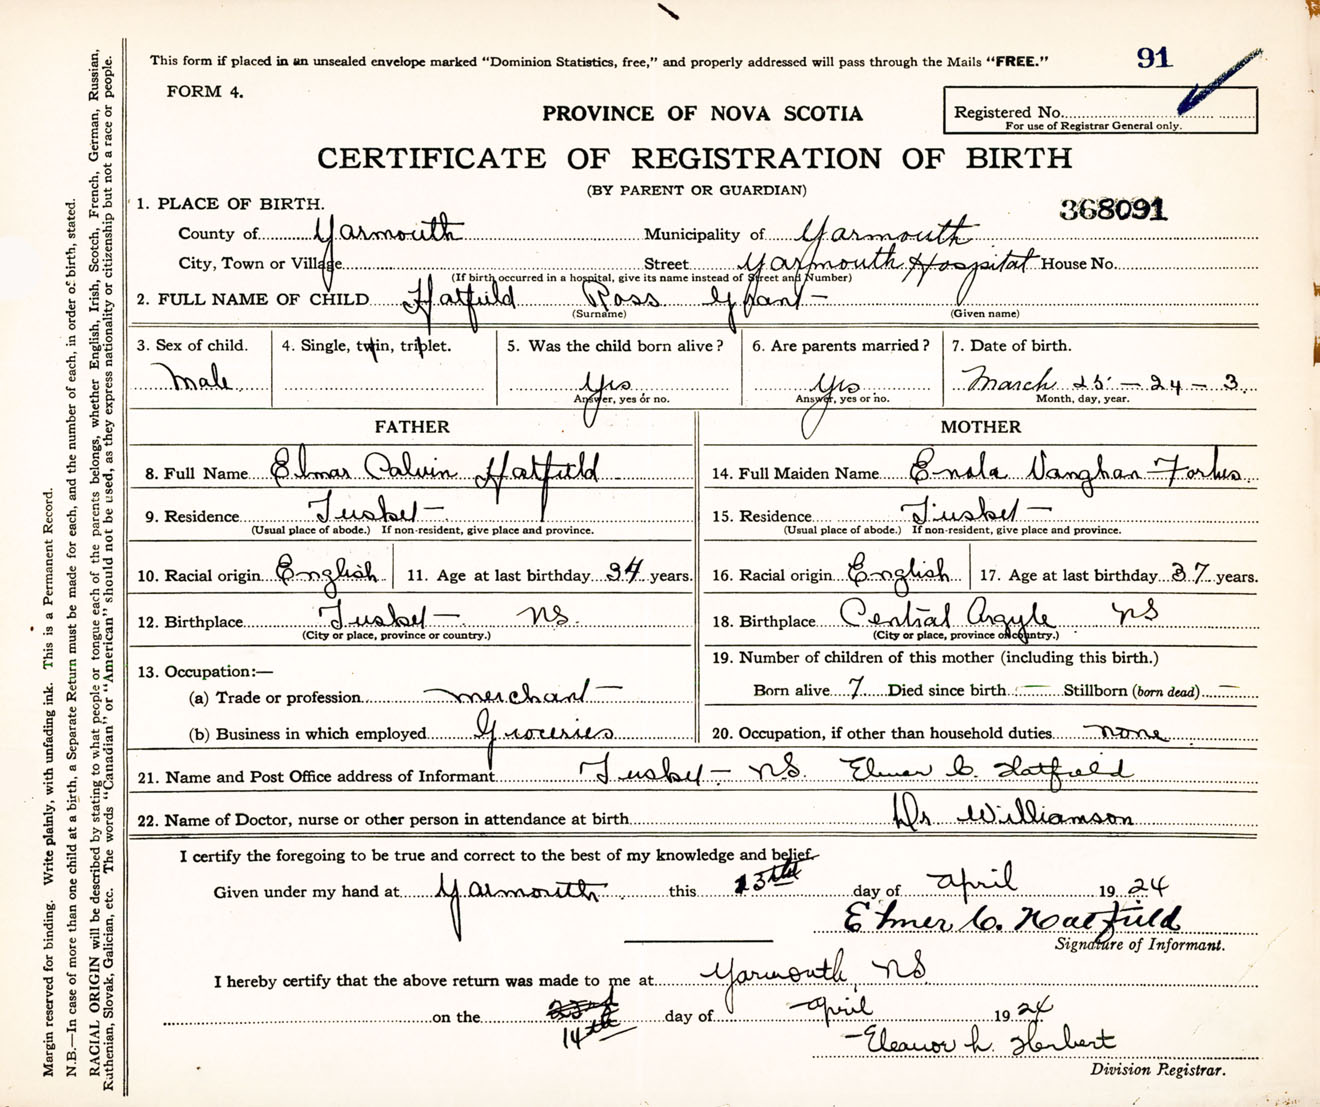 This form if placed in an unsealed envelope marked "Dominion Statistics, free," and properly addressed will pass through the Mails "FREE."
91
FORM 4.
PROVINCE OF NOVA SCOTIA
Registered No.
For use of Registrar General only.
CERTIFICATE OF REGISTRATION OF BIRTH
(BY PARENT OR GUARDIAN)
368091
1. PLACE OF BIRTH.
County of Yarmouth Municipality of Yarmouth
City, Town or Village Street Yarmouth Hospital House No.
(If birth occurred in a hospital, give its name instead of Street and Number)
2. FULL NAME OF CHILD Hatfield Ross Grant -
(Surname) (Given name)
3. Sex of child. 4. Single, twin, triplet. 5. Was the child born alive? 6. Are parents married? 7. Date of birth.
Male Yes Yes March 25 - 24 - 3
Answer, yes or no. Answer, yes or no. Month, day, year.
FATHER MOTHER
8. Full Name Elmer Calvin Hatfield 14. Full Maiden Name Enola Vaughan Forbes
9. Residence Tusket - 15. Residence Tusket -
(Usual place of abode.) If non-resident, give place and province. (Usual place of abode.) If non-resident, give place and province.
10. Racial origin English 11. Age at last birthday 34 years. 16. Racial origin English 17. Age at last birthday 37 years.
12. Birthplace Tusket - NS. 18. Birthplace Central Argyle NS
(City or place, province or country.) (City or place, province or country.)
13. Occupation:—
(a) Trade or profession merchant -
(b) Business in which employed Groceries
19. Number of children of this mother (including this birth.)
Born alive 7 Died since birth — Stillborn (born dead) —
20. Occupation, if other than household duties none
21. Name and Post Office address of Informant Tusket - NS. Elmer C. Hatfield
22. Name of Doctor, nurse or other person in attendance at birth Dr Williamson
I certify the foregoing to be true and correct to the best of my knowledge and belief.
Given under my hand at Yarmouth this 13th day of April 1924
Elmer C. Hatfield
Signature of Informant.
I hereby certify that the above return was made to me at Yarmouth, NS
on the 14th day of April 1924
Eleanor L. Herbert
Division Registrar.
Margin reserved for binding. Write plainly, with unfading ink. This is a Permanent Record.
N.B.—In case of more than one child at a birth, a Separate Return must be made for each, and the number of each, in order of birth, stated.
RACIAL ORIGIN will be described by stating to what people or tongue each of the parents belongs, whether English, Irish, Scotch, French, German, Russian,
Ruthenian, Slovak, Galician, etc. The words "Canadian" or "American" should not be used, as they express nationality or citizenship but not a race or people.